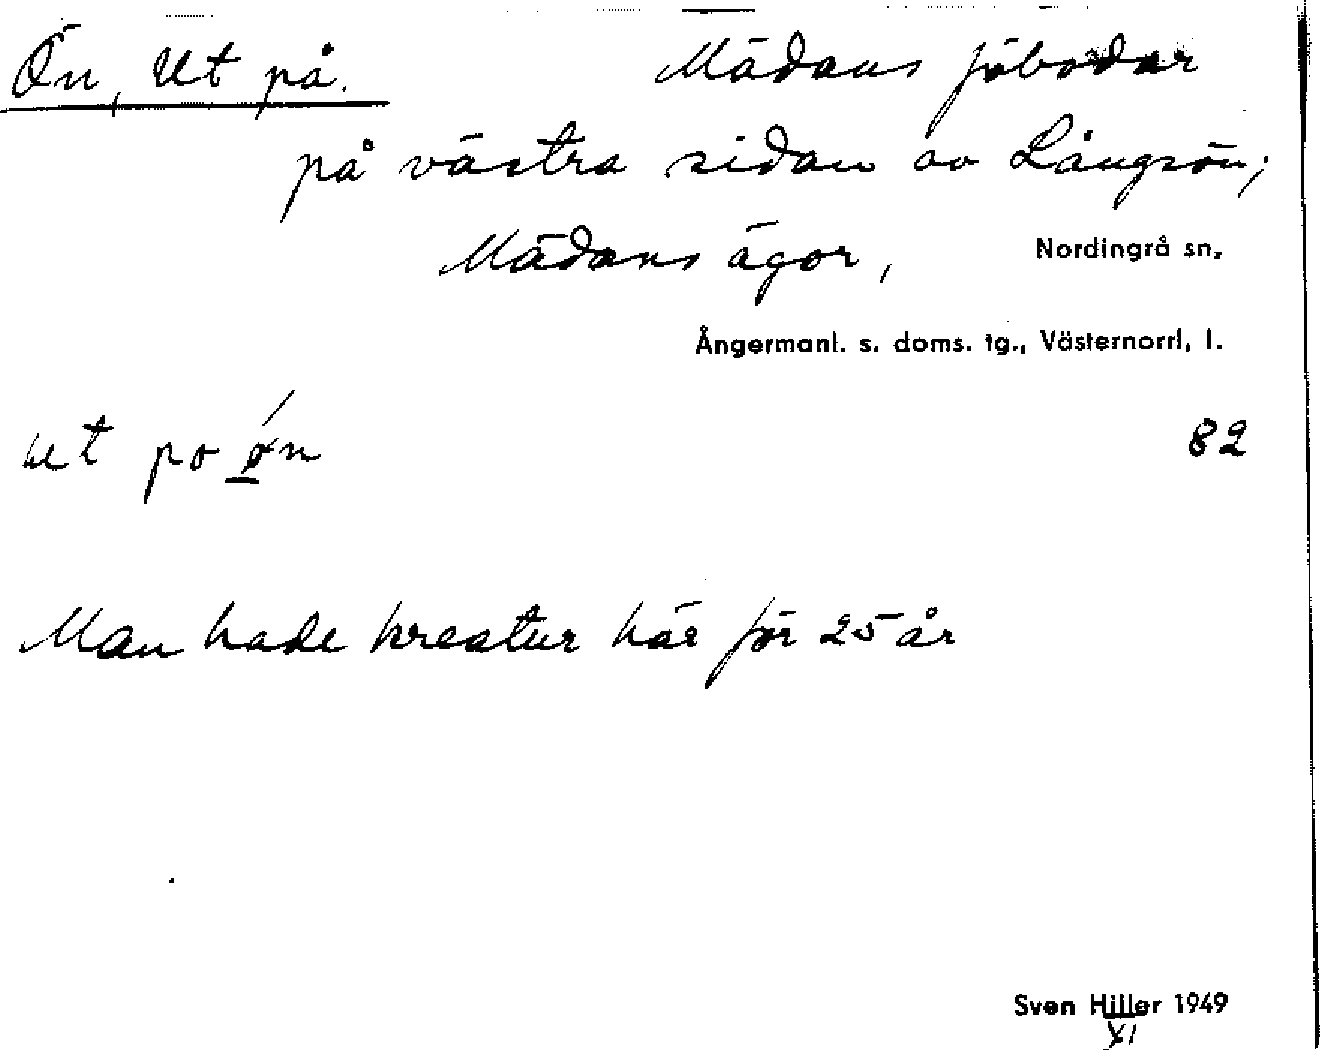 Ön, Ut på. Mädans fäbodar
på västra sidan av Långsön;
Mädans ägor, Nordingrå sn,
Ångermanl. s. doms. tg., Västernorrl, l.
ut po ǿn 82
Man hade kreatur här för 25 år
Sven Hiller 1949
XI